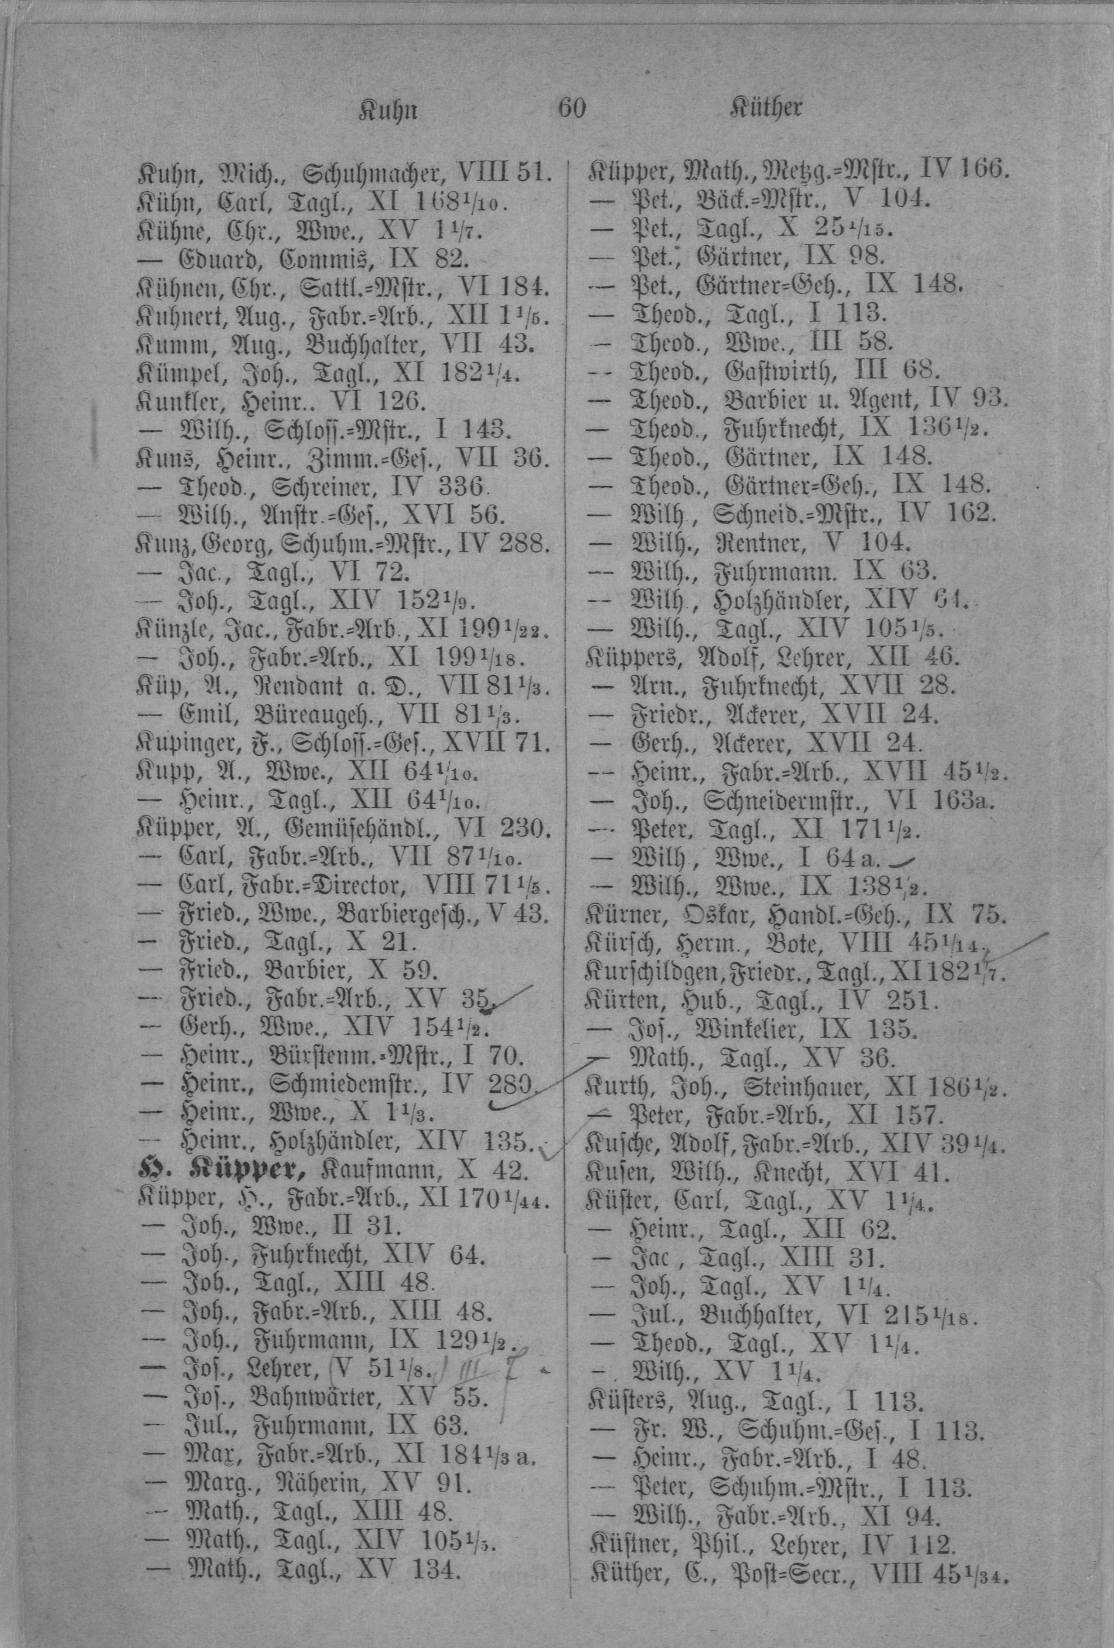 Kuhn
60
Küther
Kuhn, Mich., Schuhmacher, VIII 51.
Kühn, Carl, Tagl., XI 168 1/10.
Kühne, Chr., Wwe., XV 1 1/7.
— Eduard, Commis, IX 82.
Kühnen, Chr., Sattl.=Mstr., VI 184.
Kuhnert, Aug., Fabr.=Arb., XII 1 1/5.
Kumm, Aug., Buchhalter, VII 43.
Kümpel, Joh., Tagl., XI 182 1/4.
Kunkler, Heinr.. VI 126.
— Wilh., Schloss.=Mstr., I 143.
Kuns, Heinr., Zimm.=Ges., VII 36.
— Theod., Schreiner, IV 336.
— Wilh., Anstr.=Ges., XVI 56.
Kunz, Georg, Schuhm.=Mstr., IV 288.
— Jac., Tagl., VI 72.
— Joh., Tagl., XIV 152 1/9.
Künzle, Jac., Fabr.=Arb., XI 199 1/22.
— Joh., Fabr.=Arb., XI 199 1/18.
Küp, A., Rendant a. D., VII 81 1/3.
— Emil, Büreaugeh., VII 81 1/3.
Kupinger, F., Schloss.=Ges., XVII 71.
Kupp, A., Wwe., XII 64 1/10.
— Heinr., Tagl., XII 64 1/10.
Küpper, A., Gemüsehändl., VI 230.
— Carl, Fabr.=Arb., VII 87 1/10.
— Carl, Fabr.=Director, VIII 71 1/5.
— Fried., Wwe., Barbiergesch., V 43.
— Fried., Tagl., X 21.
— Fried., Barbier, X 59.
— Fried., Fabr.=Arb., XV 35.
— Gerh., Wwe., XIV 154 1/2.
— Heinr., Bürstenm.=Mstr., I 70.
— Heinr., Schmiedemstr., IV 289.
— Heinr., Wwe., X 1 1/3.
— Heinr., Holzhändler, XIV 135.
H. Küpper, Kaufmann, X 42.
Küpper, H., Fabr.=Arb., XI 170 1/44.
— Joh., Wwe., II 31.
— Joh., Fuhrknecht, XIV 64.
— Joh., Tagl., XIII 48.
— Joh., Fabr.=Arb., XIII 48.
— Joh., Fuhrmann, IX 129 1/2.
— Jos., Lehrer, V 51 1/8. III 7
— Jos., Bahnwärter, XV 55.
— Jul., Fuhrmann, IX 63.
— Max, Fabr.=Arb., XI 184 1/3 a.
— Marg., Näherin, XV 91.
— Math., Tagl., XIII 48.
— Math., Tagl., XIV 105 1/5.
— Math., Tagl., XV 134.
Küpper, Math., Metzg.=Mstr., IV 166.
— Pet., Bäck.=Mstr., V 104.
— Pet., Tagl., X 25 1/15.
— Pet., Gärtner, IX 98.
— Pet., Gärtner=Geh., IX 148.
— Theod., Tagl., I 113.
— Theod., Wwe., III 58.
— Theod., Gastwirth, III 68.
— Theod., Barbier u. Agent, IV 93.
— Theod., Fuhrknecht, IX 136 1/2.
— Theod., Gärtner, IX 148.
— Theod., Gärtner=Geh., IX 148.
— Wilh., Schneid.=Mstr., IV 162.
— Wilh., Rentner, V 104.
— Wilh., Fuhrmann. IX 63.
— Wilh., Holzhändler, XIV 64.
— Wilh., Tagl., XIV 105 1/5.
Küppers, Adolf, Lehrer, XII 46.
— Arn., Fuhrknecht, XVII 28.
— Friedr., Ackerer, XVII 24.
— Gerh., Ackerer, XVII 24.
— Heinr., Fabr.=Arb., XVII 45 1/2.
— Joh., Schneidermstr., VI 163a.
— Peter, Tagl., XI 171 1/2.
— Wilh, Wwe., I 64 a.
— Wilh., Wwe., IX 138 1/2.
Kürner, Oskar, Handl.=Geh., IX 75.
Kürsch, Herm., Bote, VIII 45 1/14.
Kurschildgen, Friedr., Tagl., XI 182 1/7.
Kürten, Hub., Tagl., IV 251.
— Jos., Winkelier, IX 135.
— Math., Tagl., XV 36.
Kurth, Joh., Steinhauer, XI 186 1/2.
— Peter, Fabr.=Arb., XI 157.
Kusche, Adolf, Fabr.=Arb., XIV 39 1/4.
Kusen, Wilh., Knecht, XVI 41.
Küster, Carl, Tagl., XV 1 1/4.
— Heinr., Tagl., XII 62.
— Jac., Tagl., XIII 31.
— Joh., Tagl., XV 1 1/4.
— Jul., Buchhalter, VI 215 1/18.
— Theod., Tagl., XV 1 1/4.
— Wilh., XV 1 1/4.
Küsters, Aug., Tagl., I 113.
— Fr. W., Schuhm.=Ges., I 113.
— Heinr., Fabr.=Arb., I 48.
— Peter, Schuhm.=Mstr., I 113.
— Wilh., Fabr.=Arb., XI 94.
Küstner, Phil., Lehrer, IV 112.
Küther, C., Post=Secr., VIII 45 1/34.